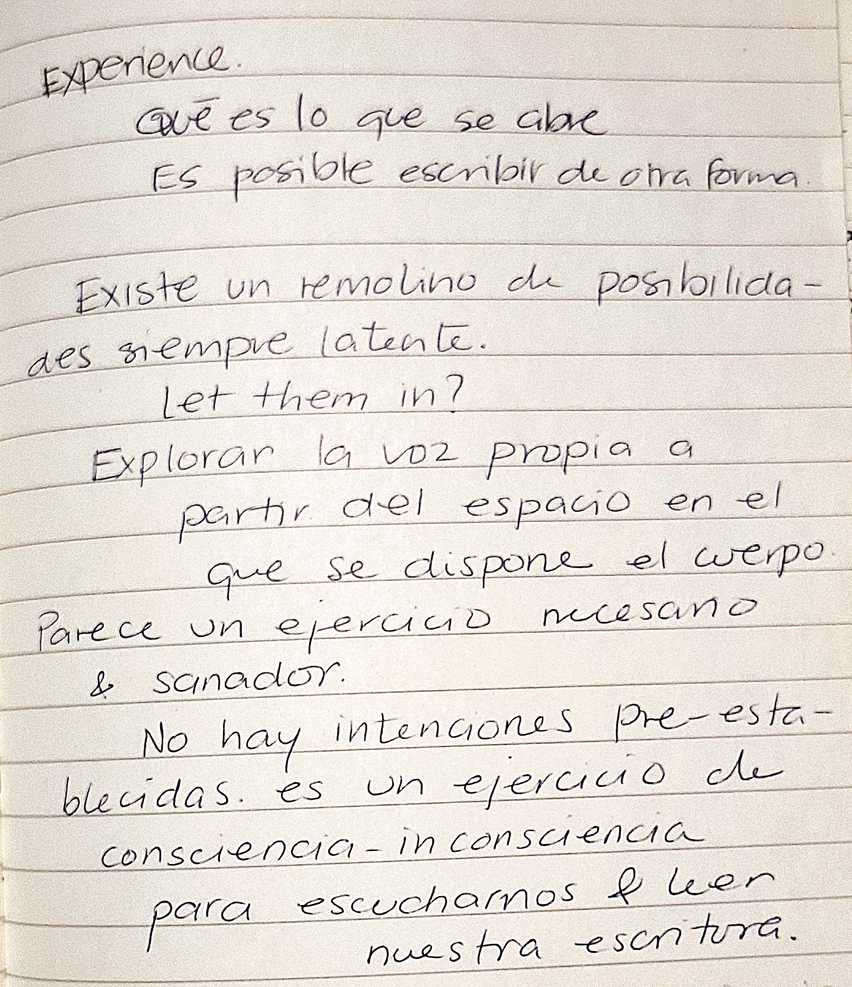 Experience.
Qué es lo que se abre
Es posible escribir de otra forma.
Existe un remolino de posibilida-
des siempre latente.
Let them in?
Explorar la voz propia a
partir del espacio en el
que se dispone el cuerpo.
Parece un ejercicio necesario
& sanador.
No hay intenciones pre-esta-
blecidas. es un ejercicio de
consciencia-inconsciencia
para escucharnos & leer
nuestra escritura.